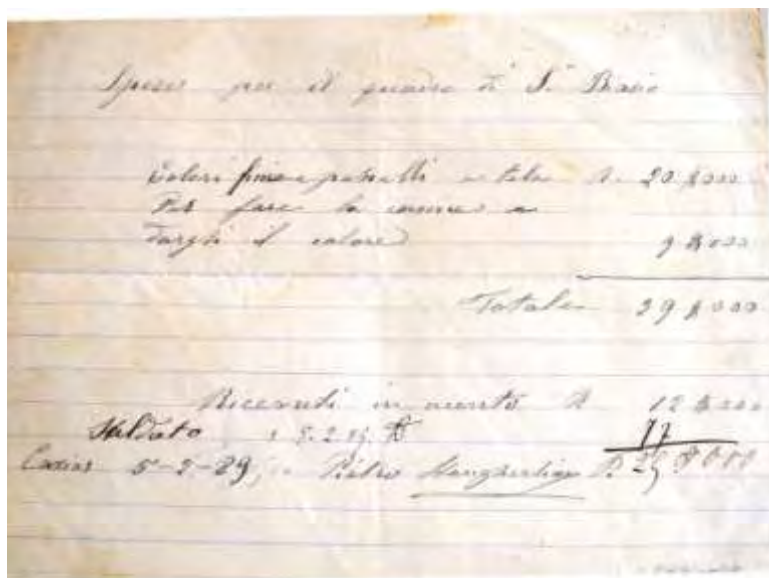 Spese per il quadro di S. Biasio
Colori fini e penelli e tela R. 20$000
Per fare la cornice e
dargli il colore 9$000
Totale 29$000
Ricevuti in aconto R 12$000
Saldato 5.2.89 17
Caxias 5-2-89 Pietro R. 29$000